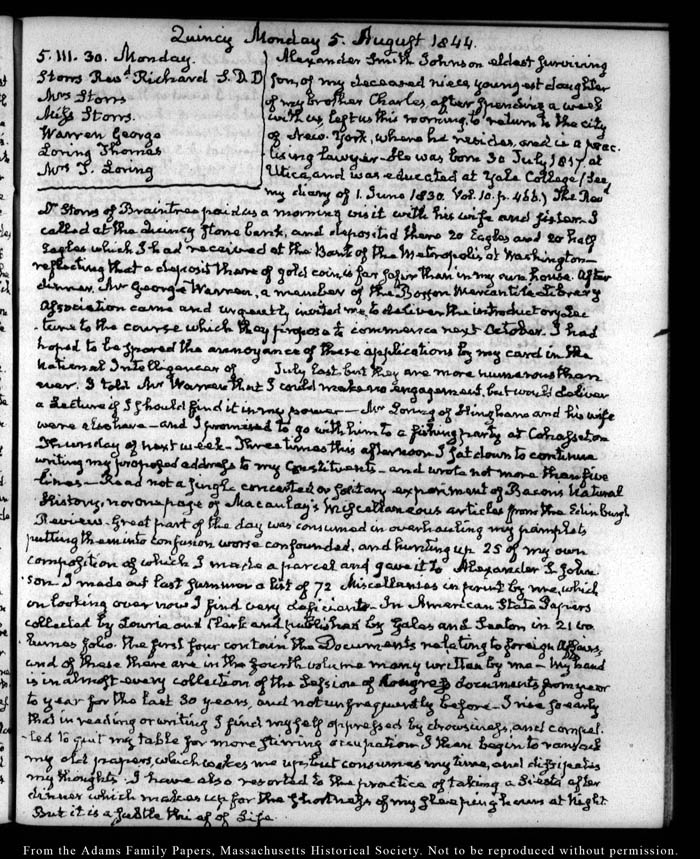 Quincy Monday 5. August 1844.
5. III. 30. Monday.
Storrs Revd. Richard S. D.D
Mrs Storrs
Miss Storrs.
Warren George
Loring Thomas
Mrs T. Loring
Alexander Smith Johnson eldest surviving
son, of my deceased niece, youngest daughter
of my brother Charles, after spending a week
with us, left us this morning, to return to the city
of New-York, where he resides, and is a prac-
tising lawyer. He was born 30 July, 1817, at
Utica, and was educated at Yale College (See
my diary of 1. June 1830. Vol. 10. p. 466.) The Revd
Dr Storrs of Braintree paid us a morning visit with his wife and sister. I
called at the Quincy Stone bank, and deposited there 20 Eagles and 20 half
Eagles which I had received at the Bank of the Metropolis at Washington—
reflecting that a deposit there of gold coin, is far safer than in my own house. After
dinner, Mr George Warren, a member of the Boston Mercantile Library
Association came and urgently invited me, to deliver the introductory Lec-
ture to the course which they propose to commence next October. I had
hoped to be spared the annoyance of these applications by my card in the
National Intelligencer of July last, but they are more numerous than
ever. I told Mr Warren that I could make no engagement, but would deliver
a Lecture if I should find it in my power— Mr Loring of Hingham and his wife
were also here—and I promised to go with him to a fishing party at Cohasset on
Thursday of next week— Three times this afternoon I sat down to continue
writing my proposed address to my Constituents—and wrote not more than five
lines— Read not a single concerted or solitary experiment of Bacons Natural
History, nor one page of Macaulay's Miscellaneous articles from the Edinburgh
Review. Great part of the day was consumed in overhauling my pamphlets
putting them into confusion worse confounded, and hunting up 25 of my own
composition of which I made a parcel and gave it to Alexander S. John-
son. I made out last summer a list of 72 Miscellanies in print by me, which
on looking over now I find very deficient— In American State Papers
collected by Lowrie and Clark and published by Gales and Seaton in 21 vo-
lumes folio. the first four contain the Documents relating to foreign Affairs,
and of these there are in the fourth volume many written by me— My hand
is in almost every collection of the Session of Congress documents from year
to year for the last 30 years, and not unfrequently before— I rise so early
that in reading or writing I find myself oppressed by drowsiness, and compel-
led to quit my table for more stirring occupation. I then begin to ransack
my old papers, which wakes me up, but consumes my time, and dissipates
my thoughts. I have also resorted to the practice of taking a Siesta after
dinner which makes up for the shortness of my sleeping hours at Night
But it is a subtle thief of Life.
From the Adams Family Papers, Massachusetts Historical Society. Not to be reproduced without permission.